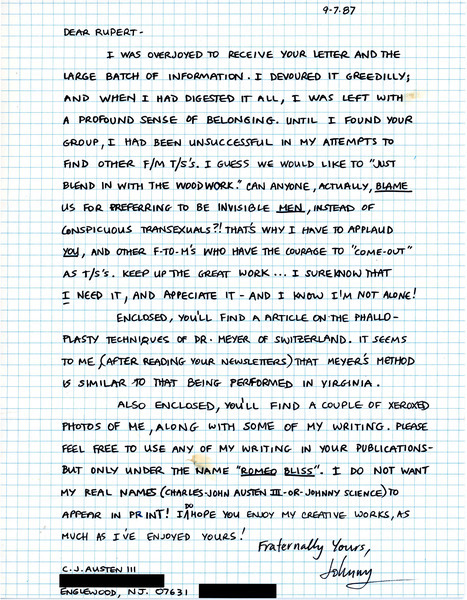 9-7-87
DEAR RUPERT -
I WAS OVERJOYED TO RECEIVE YOUR LETTER AND THE
LARGE BATCH OF INFORMATION. I DEVOURED IT GREEDILY;
AND WHEN I HAD DIGESTED IT ALL, I WAS LEFT WITH
A PROFOUND SENSE OF BELONGING. UNTIL I FOUND YOUR
GROUP, I HAD BEEN UNSUCCESSFUL IN MY ATTEMPTS TO
FIND OTHER F/M T/S'S. I GUESS WE WOULD LIKE TO "JUST
BLEND IN WITH THE WOODWORK." CAN ANYONE, ACTUALLY, BLAME
US FOR PREFERRING TO BE INVISIBLE MEN, INSTEAD OF
CONSPICUOUS TRANSEXUALS?! THAT'S WHY I HAVE TO APPLAUD
YOU, AND OTHER F-TO-M'S WHO HAVE THE COURAGE TO "COME-OUT"
AS T/S'S. KEEP UP THE GREAT WORK... I SURE KNOW THAT
I NEED IT, AND APPECIATE IT - AND I KNOW I'M NOT ALONE!
ENCLOSED, YOU'LL FIND A ARTICLE ON THE PHALLO-
PLASTY TECHNIQUES OF DR. MEYER OF SWITZERLAND. IT SEEMS
TO ME, (AFTER READING YOUR NEWSLETTERS) THAT MEYER'S METHOD
IS SIMILAR TO THAT BEING PERFORMED IN VIRGINIA.
ALSO ENCLOSED, YOU'LL FIND A COUPLE OF XEROXED
PHOTOS OF ME, ALONG WITH SOME OF MY WRITING. PLEASE
FEEL FREE TO USE ANY OF MY WRITING IN YOUR PUBLICATIONS-
BUT ONLY UNDER THE NAME "ROMEO BLISS". I DO NOT WANT
MY REAL NAMES (CHARLES-JOHN AUSTEN III-OR-JOHNNY SCIENCE) TO
APPEAR IN PRINT! I DO HOPE YOU ENJOY MY CREATIVE WORKS, AS
MUCH AS I'VE ENJOYED YOURS!
Fraternally Yours,
Johnny
C.J. AUSTEN III
ENGLEWOOD, N.J. 07631